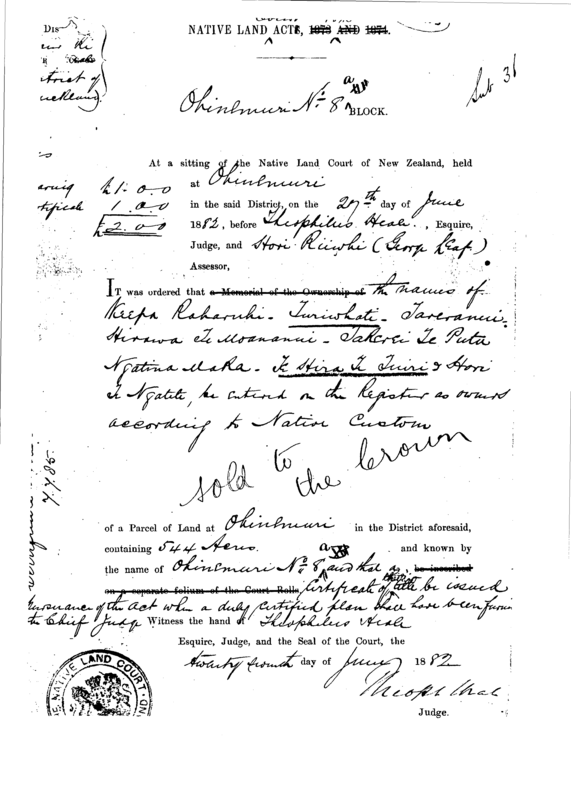 NATIVE LAND ACTS, 1873 AND 1874.
Ohinemuri No. 8 A BLOCK.
Sub 31
At a sitting of the Native Land Court of New Zealand, held
at Ohinemuri
in the said District, on the 27th day of June
1882, before Theophilus Heale, Esquire,
Judge, and Hori Riiwhi (George Leaf)
Assessor,
£1. 0. 0
1. 0. 0
£2. 0. 0
IT was ordered that a Memorial of the Ownership of the names of
Keepa Raharuhi - Turiwhati - Tareranui -
Hirawa Te Moananui - Takerei Te Puta
Ngatina Maka - Te Hira Te Tuiri & Hori
Te Ngatete, be entered on the Register as owners
according to Native Custom
sold to
the Crown
of a Parcel of Land at Ohinemuri in the District aforesaid,
containing 544 Acres. and known by
the name of Ohinemuri No. 8 A and that a be inscribed
on a separate folium of the Court Rolls Certificate of title be issued
in pursuance of the Act when a duly certified plan shall have been
to Chief Judge Witness the hand of Theophilus Heale
Esquire, Judge, and the Seal of the Court, the
twenty seventh day of June 1882
Theoph Heale
Judge.
NATIVE LAND COURT